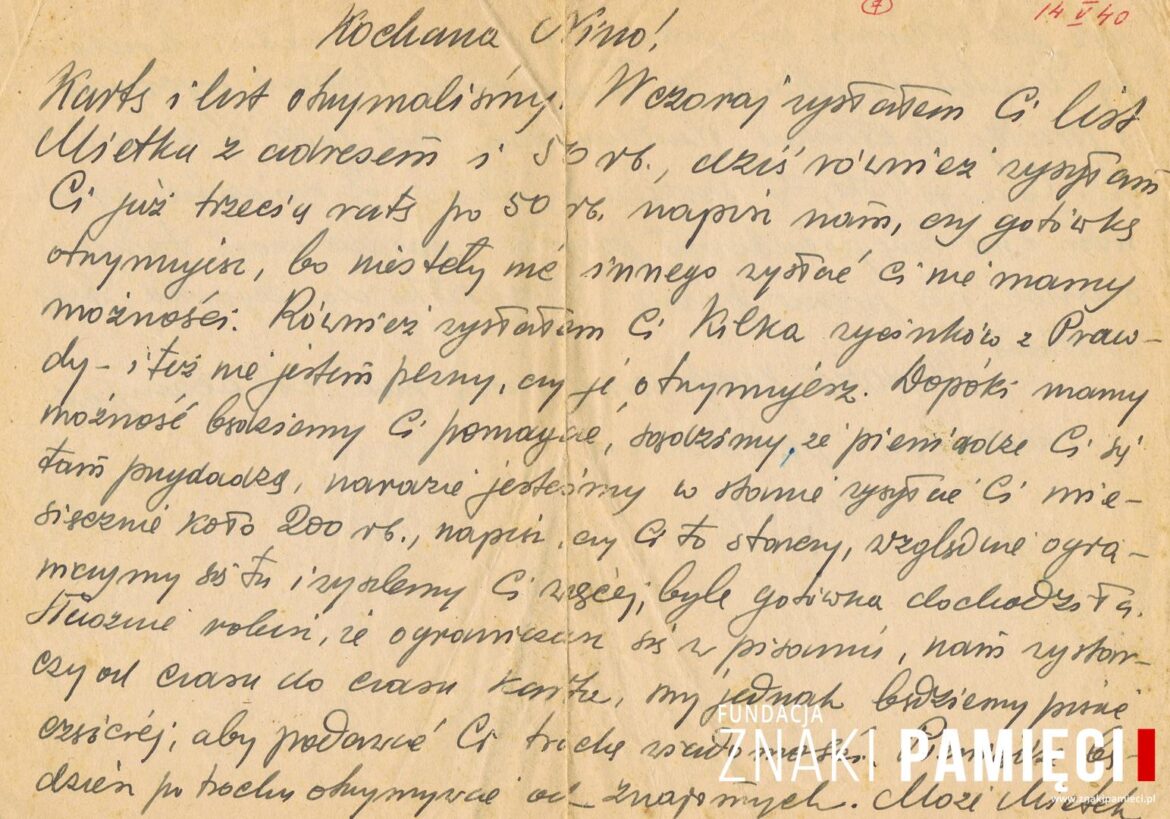 7 14 V 40
Kochana Nino!
Kartę i list otrzymaliśmy. Wczoraj wysłałem Ci list
Mietka z adresem i 50 rb., dziś również wysyłam
Ci już trzecią ratę po 50 rb. napisz nam, czy gotówkę
otrzymujesz, bo niestety nic innego wysłać Ci nie mamy
możności. Również wysłałem Ci kilka wycinków z Praw-
dy - i też nie jestem pewny, czy je otrzymujesz. Dopóki mamy
możność będziemy Ci pomagać, sądzimy, że pieniądze Ci się
tam przydadzą, narazie jesteśmy w stanie wysyłać Ci mie-
sięcznie koło 200 rb., napisz, czy Ci to starczy, względnie ogra-
niczymy się tu i wyszlemy Ci więcej, byle gotówka dochodziła.
Słusznie robisz, że ograniczasz się w pisaniu, nam wystar-
czy od czasu do czasu kartka, my jednak będziemy pisać
częściej, aby podawać Ci trochę wiadomości.
dzień po trochu otrzymywać od znajomych. Może Mietek
FUNDACJA
ZNAKI PAMIĘCI
www.znakipamieci.pl